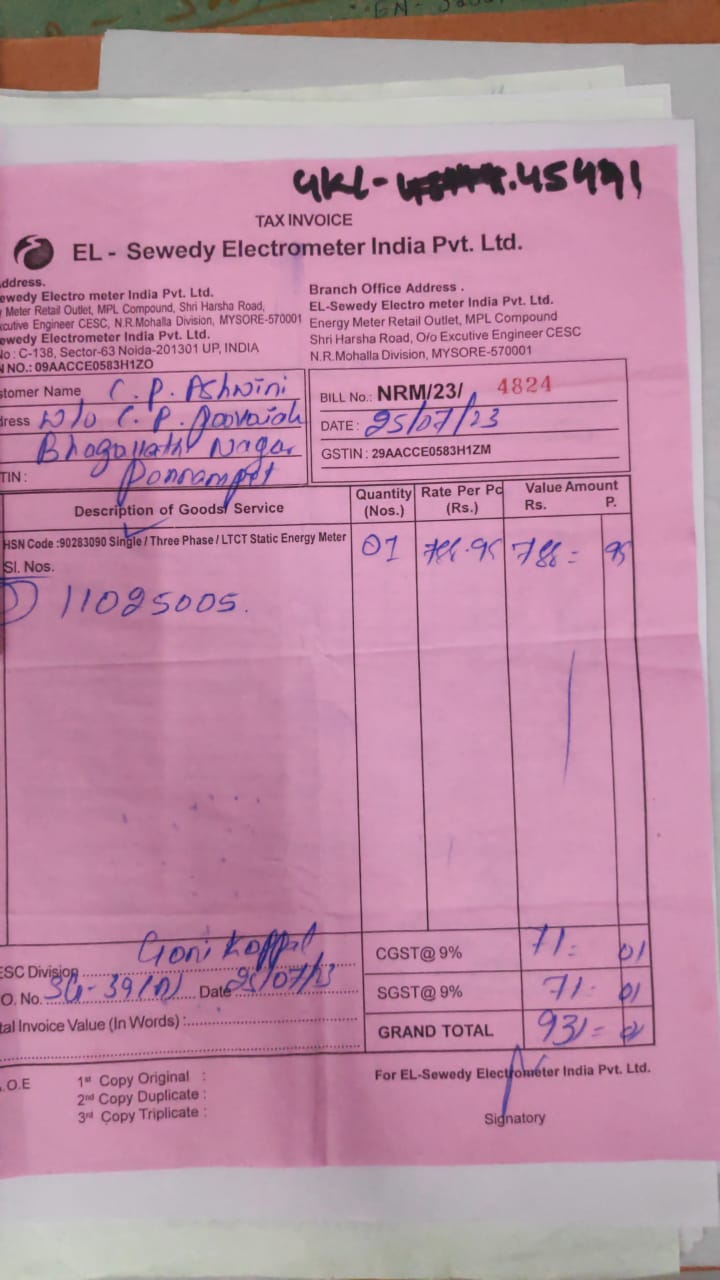 GKL- .45491
TAX INVOICE
EL - Sewedy Electrometer India Pvt. Ltd.
ddress.
ewedy Electro meter India Pvt. Ltd.
Meter Retail Outlet, MPL Compound, Shri Harsha Road,
xcutive Engineer CESC, N.R.Mohalla Division, MYSORE-570001
ewedy Electrometer India Pvt. Ltd.
No : C-138, Sector-63 Noida-201301 UP, INDIA
N NO.: 09AACCE0583H1ZO
Branch Office Address .
EL-Sewedy Electro meter India Pvt. Ltd.
Energy Meter Retail Outlet, MPL Compound
Shri Harsha Road, O/o Excutive Engineer CESC
N.R.Mohalla Division, MYSORE-570001
stomer Name C.P. Ashwini
ress W/o C.P. Poovaiah
Bhagavathi Nagar
TIN : Ponnampet
BILL No.: NRM/23/ 4824
DATE : 25/07/23
GSTIN : 29AACCE0583H1ZM
Description of Goods/ Service
Quantity (Nos.)
Rate Per Pc (Rs.)
Value Amount Rs. P.
HSN Code :90283090 Single / Three Phase / LTCT Static Energy Meter 01 788.95 788= 95
Sl. Nos.
1) 11025005.
ESC Division Gonikoppal
O. No. SG-39(N) Date 25/07/23
tal Invoice Value (In Words) :
CGST@ 9% 71= 01
SGST@ 9% 71- 01
GRAND TOTAL 931=
.O.E
1st Copy Original :
2nd Copy Duplicate :
3rd Copy Triplicate :
For EL-Sewedy Electrometer India Pvt. Ltd.
Signatory